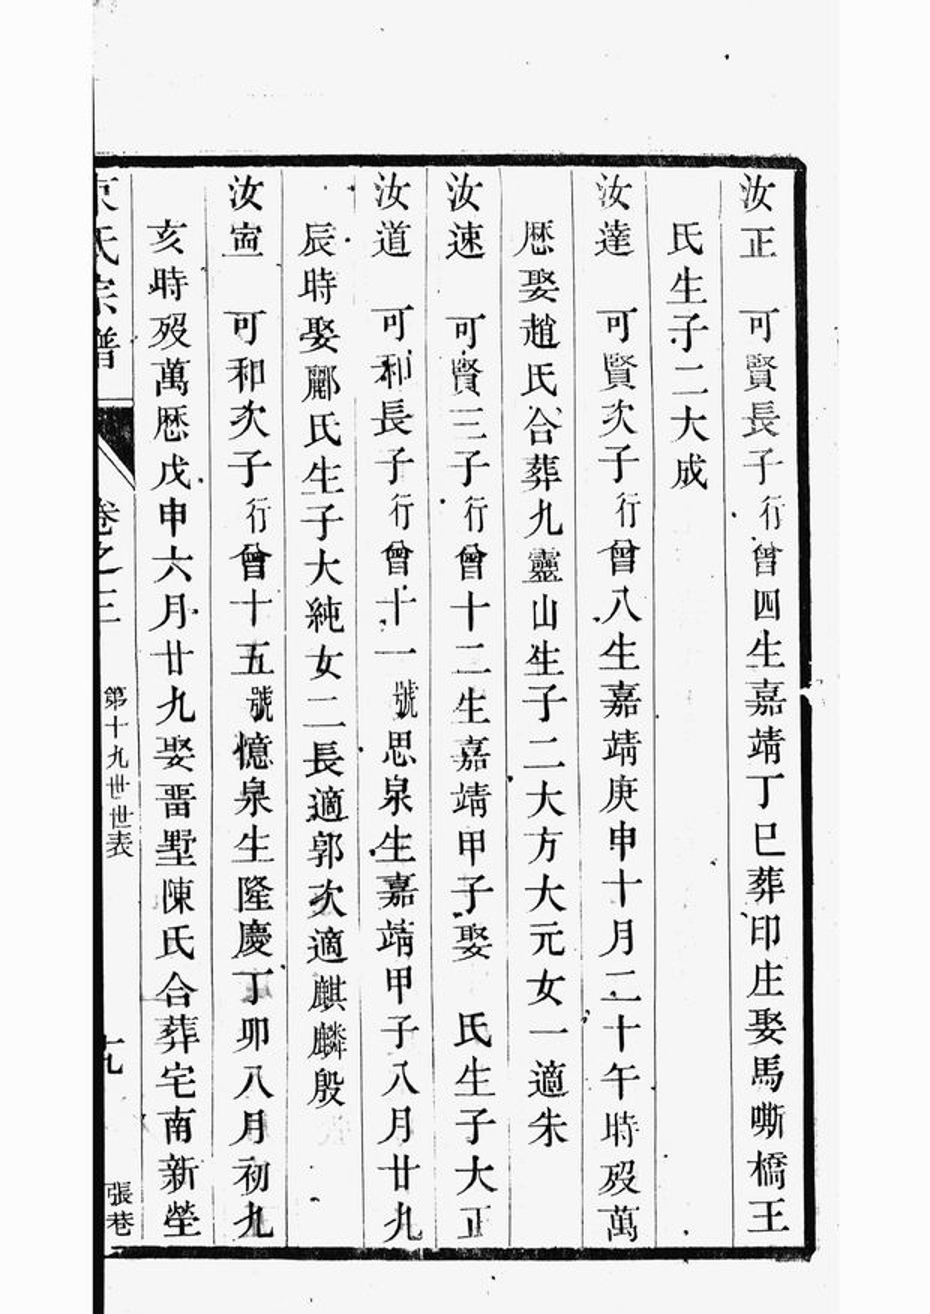 汝正 可賢長子行曾四生嘉靖丁巳葬印庄娶馬嘶橋王
氏生子二大成
汝達 可賢次子行曾八生嘉靖庚申十月二十午時歿萬
厯娶趙氏合葬九靈山生子二大方大元女一適朱
汝速 可賢三子行曾十二生嘉靖甲子娶 氏生子大正
汝道 可和長子行曾十一號思泉生嘉靖甲子八月廿九
辰時娶酈氏生子大純女二長適郭次適麒麟殷
汝𡩋 可和次子行曾十五號憶泉生隆慶丁卯八月初九
亥時歿萬厯戊申六月廿九娶畱墅陳氏合葬宅南新塋
氏宗譜 卷之三 第十九世世表 九 張巷